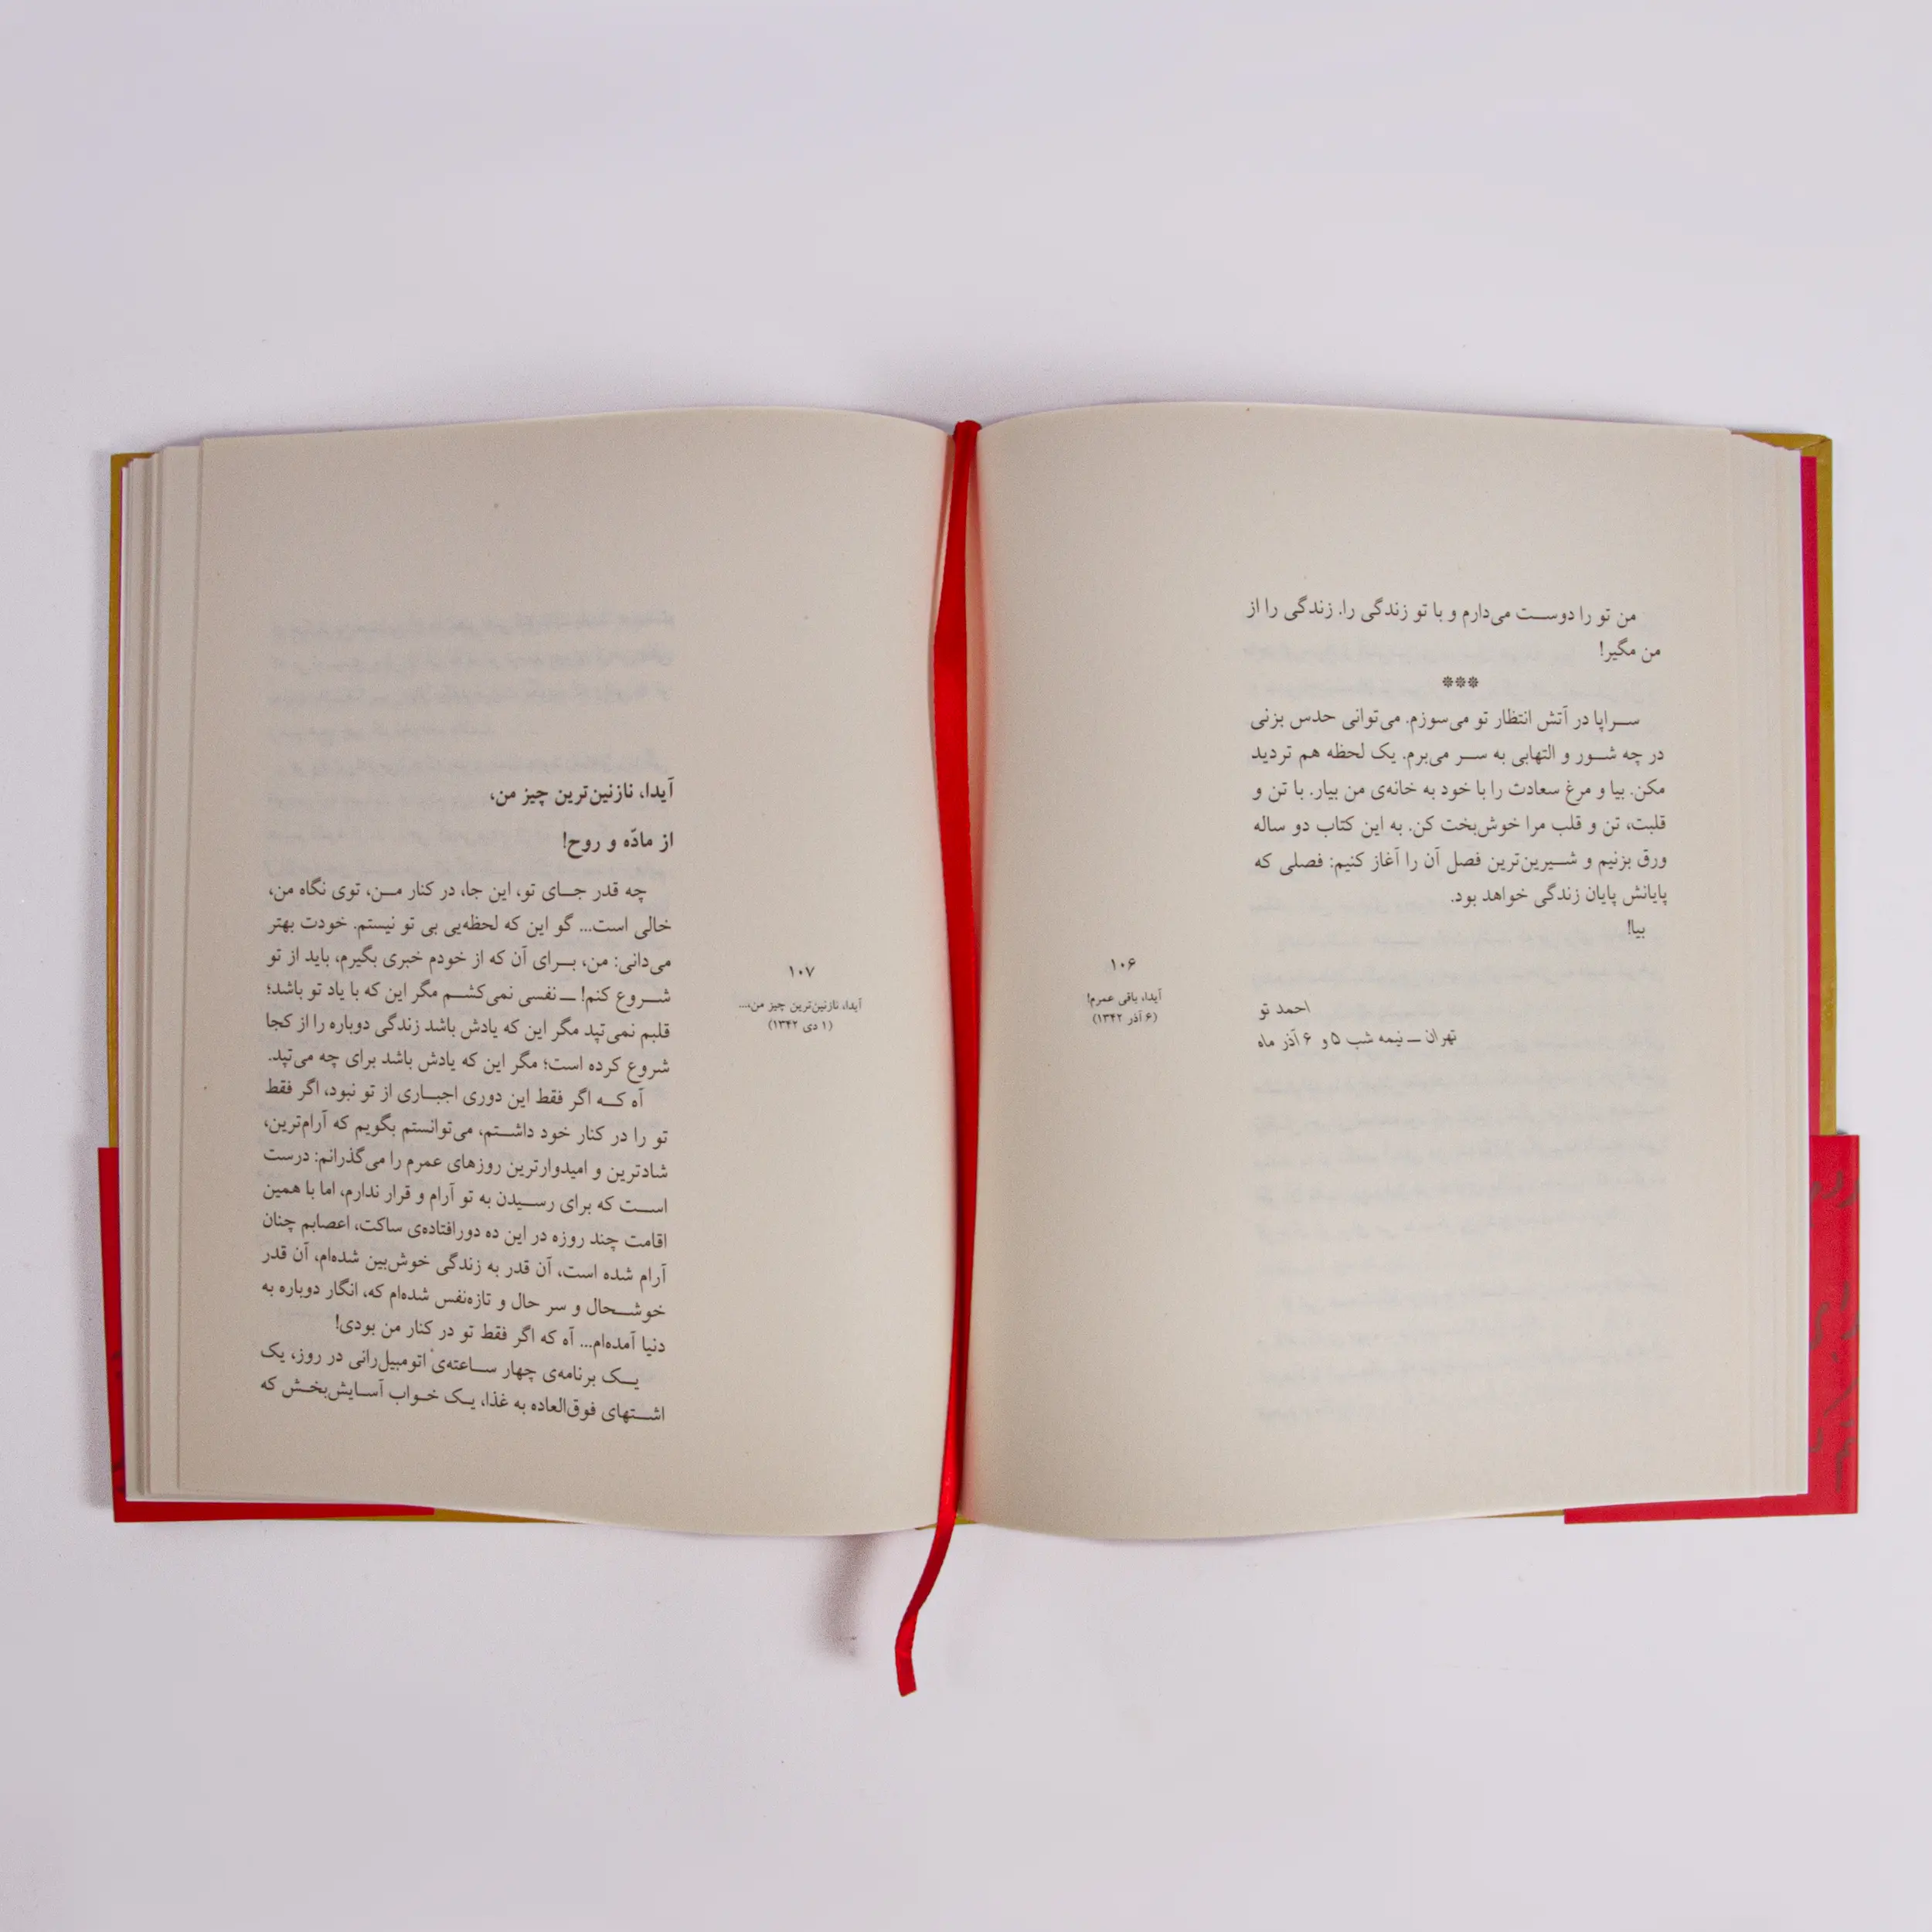 من تو را دوست می‌دارم و با تو زندگی را. زندگی را از
من مگیر!
***
سراپا در آتش انتظار تو می‌سوزم. می‌توانی حدس بزنی
در چه شور و التهابی به سر می‌برم. یک لحظه هم تردید
مکن. بیا و مرغ سعادت را با خود به خانه‌ی من بیار. با تن و
قلبت، تن و قلب مرا خوش‌بخت کن. به این کتاب دو ساله
ورق بزنیم و شیرین‌ترین فصل آن را آغاز کنیم: فصلی که
پایانش پایان زندگی خواهد بود.
بیا!
احمد تو
تهران ــ نیمه شب ۵ و ۶ آذر ماه
۱۰۶
آیدا، باقی عمرم!
(۶ آذر ۱۳۴۲)
۱۰۷
آیدا، نازنین‌ترین چیز من،...
(۱ دی ۱۳۴۲)
آیدا، نازنین‌ترین چیز من،
از مادّه و روح!
چه قدر جای تو، این جا، در کنار من، توی نگاه من،
خالی است... گو این که لحظه‌یی بی تو نیستم. خودت بهتر
می‌دانی: من، برای آن که از خودم خبری بگیرم، باید از تو
شروع کنم! ــ نفسی نمی‌کشم مگر این که با یاد تو باشد؛
قلبم نمی‌تپد مگر این که یادش باشد زندگی دوباره را از کجا
شروع کرده است؛ مگر این که یادش باشد برای چه می‌تپد.
آه که اگر فقط این دوری اجباری از تو نبود، اگر فقط
تو را در کنار خود داشتم، می‌توانستم بگویم که آرام‌ترین،
شادترین و امیدوارترین روزهای عمرم را می‌گذرانم: درست
است که برای رسیدن به تو آرام و قرار ندارم، اما با همین
اقامت چند روزه در این ده دورافتاده‌ی ساکت، اعصابم چنان
آرام شده است، آن قدر به زندگی خوش‌بین شده‌ام، آن قدر
خوشحال و سر حال و تازه‌نفس شده‌ام که، انگار دوباره به
دنیا آمده‌ام... آه که اگر فقط تو در کنار من بودی!
یک برنامه‌ی چهار ساعته‌ی اتومبیل‌رانی در روز، یک
اشتهای فوق‌العاده به غذا، یک خواب آسایش‌بخش که